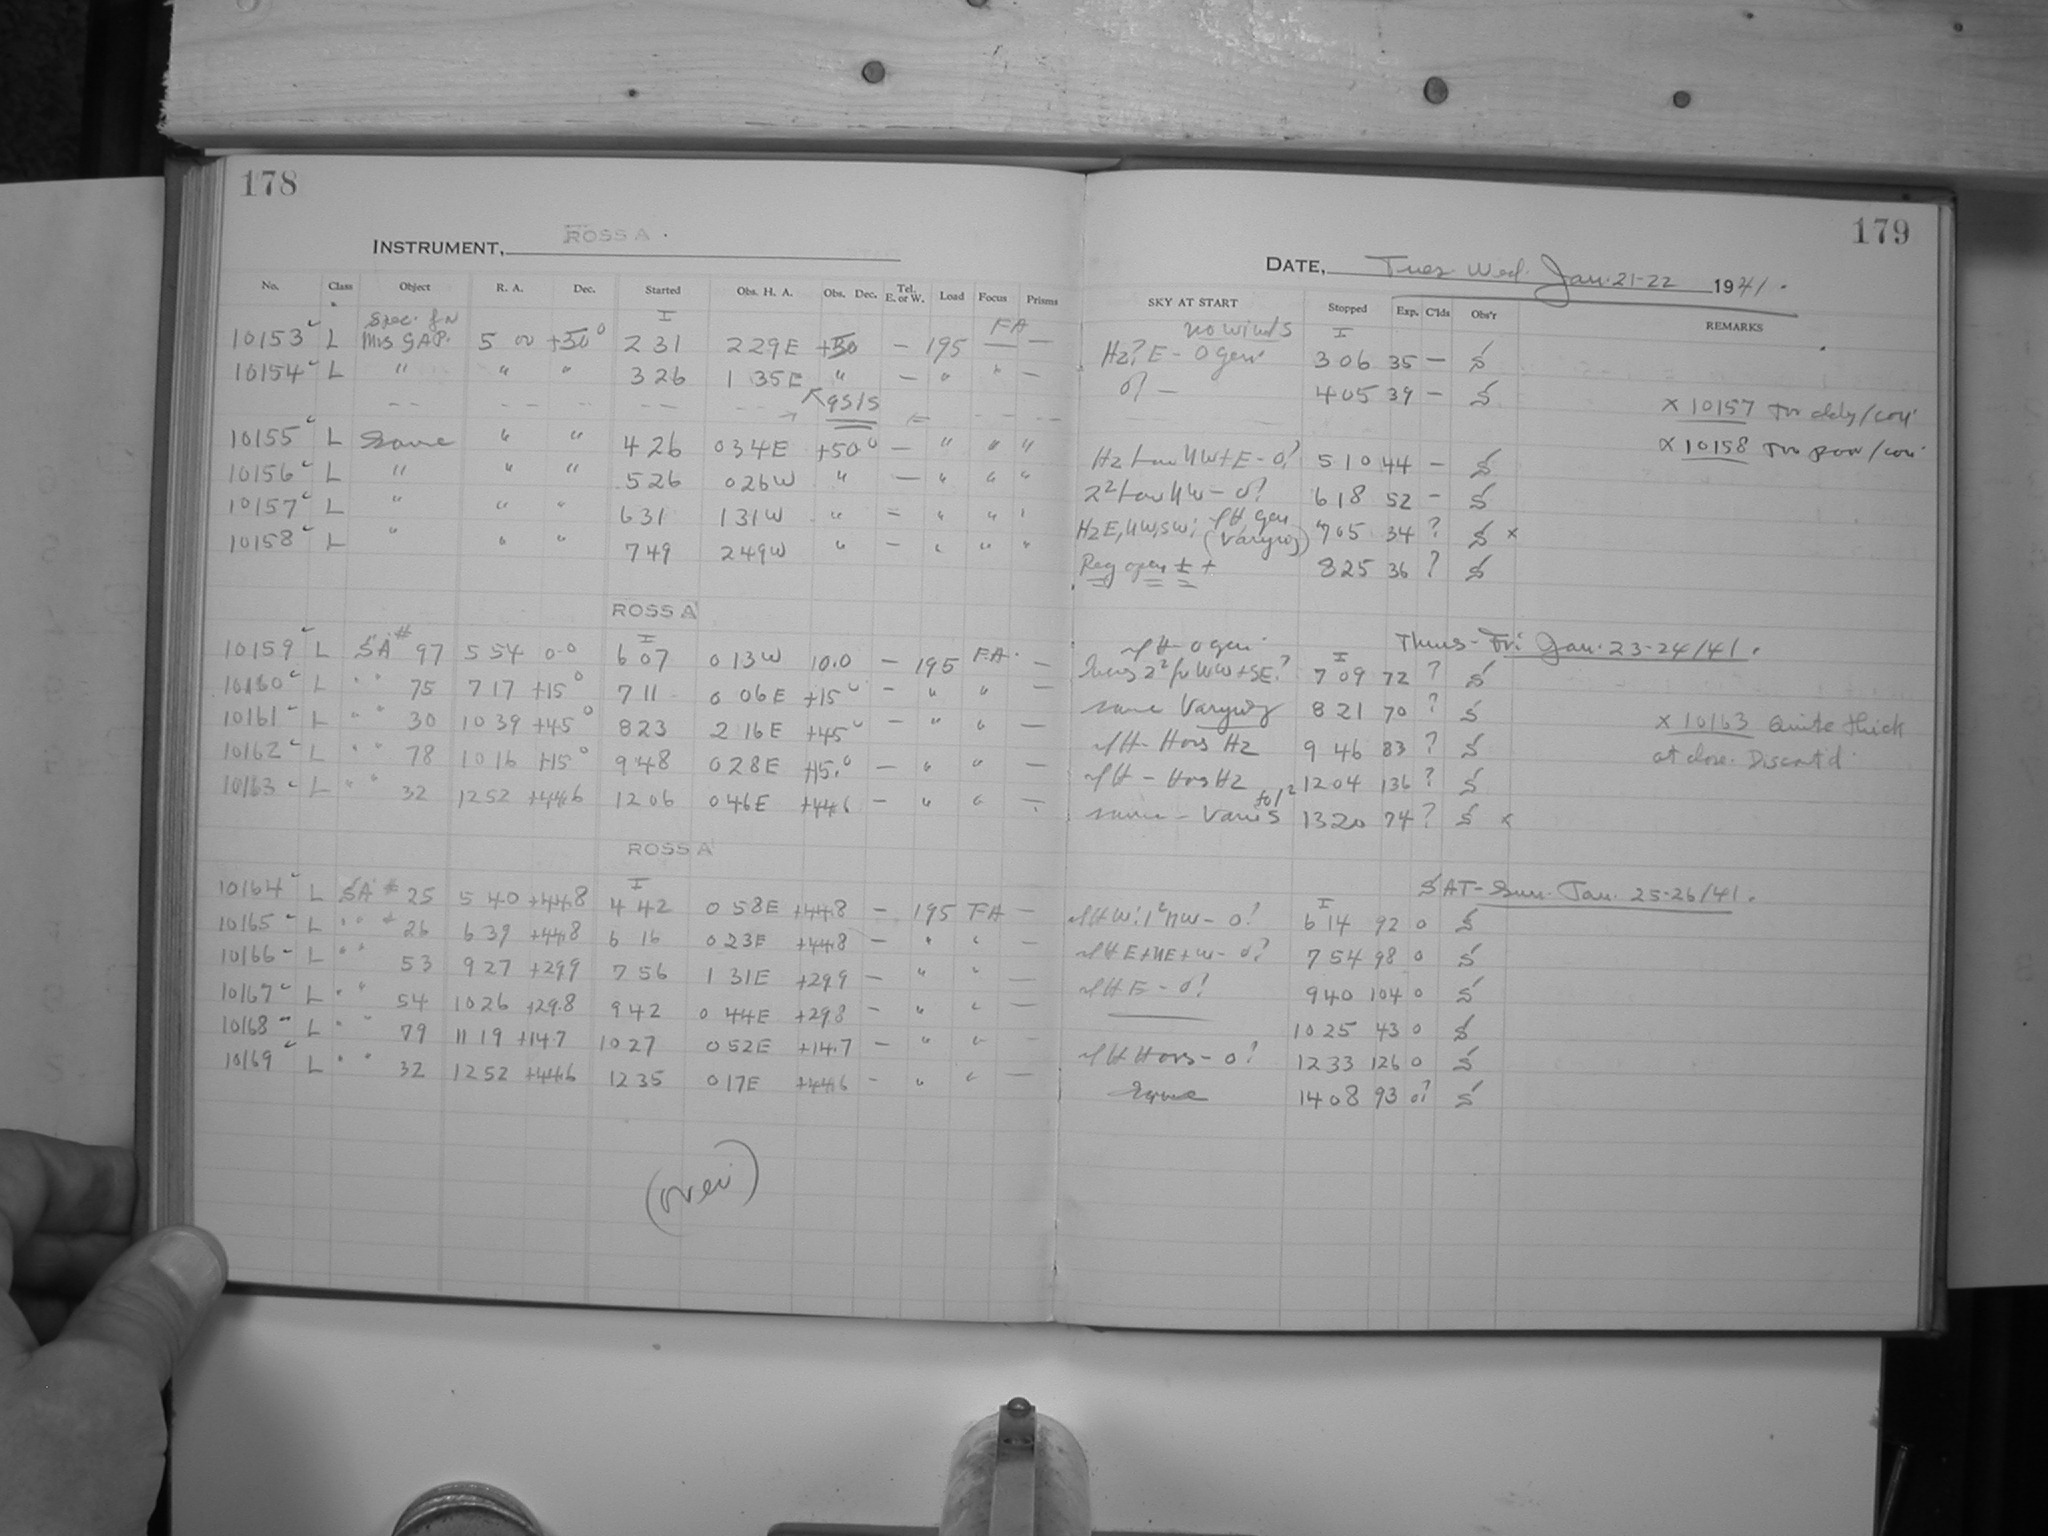 178
INSTRUMENT, ROSS A.
No. Class Object R. A. Dec. Started Obs. H. A. Obs. Dec. Tel. E. or W. Load Focus Prisms
Spec. for I FA
10153 L Mrs GAP. 5 00 +50° 2 31 2 29E +50 — 195 — —
10154 L " " " 3 26 1 35E " — " " —
10155 L Same " " 4 26 0 34E +50° — " " "
10156 L " " " 5 26 0 26W " — " " "
10157 L " " " 6 31 1 31W " — " " "
10158 L " " " 7 49 2 49W " — " " "
ROSS A
I
10159 L SA # 97 5 54 0.0 6 07 0 13W 10.0 — 195 FA. —
10160 L " " 75 7 17 +15° 7 11 0 06E +15° — " " —
10161 L " " 30 10 39 +45° 8 23 2 16E +45° — " " —
10162 L " " 78 10 16 +15° 9 48 0 28E +15.° — " " —
10163 L " " 32 12 52 +44.6 12 06 0 46E +44.6 — " " —
ROSS A
I
10164 L SA # 25 5 40 +44.8 4 42 0 58E +44.8 — 195 FA —
10165 L " " # 26 6 39 +44.8 6 16 0 23E +44.8 — " " —
10166 L " " 53 9 27 +29.9 7 56 1 31E +29.9 — " " —
10167 L " " 54 10 26 +29.8 9 42 0 44E +29.8 — " " —
10168 L " " 79 11 19 +14.7 10 27 0 52E +14.7 — " " —
10169 L " " 32 12 52 +44.6 12 35 0 17E +44.6 — " " —
(over)
179
DATE, Tues. Wed. Jan. 21-22 1941.
SKY AT START Stopped Exp. C'lds Obs'r REMARKS
no winds I
Hz? E - 0 gen. 3 06 35 — S
0? — 4 05 39 — S
x 10157 Too
x 10158 Too poor
Hz low NW+E - 0? 5 10 44 — S
2² low NW - 0? 6 18 52 — S
Hz E, NW, SW; gen (Varying) 7 05 34 ? S x
Reg open ± + 8 25 36 ? S
Thurs - Fri Jan. 23-24/41.
0 gen. I
NW + SE? 7 09 72 ? S
same Varying 8 21 70 ? S
Hors Hz 9 46 83 ? S
Hors Hz 12 04 136 ? S
same - Varies 13 20 74 ? S x
x 10163 Quite thick
at close. Discont'd
SAT - Sun. Jan. 25-26/41.
I
NW - 0? 6 14 92 0 S
E+NE+W - 0? 7 54 98 0 S
E - 0? 9 40 104 0 S
10 25 43 0 S
Hors - 0? 12 33 126 0 S
Same 14 08 93 0? S